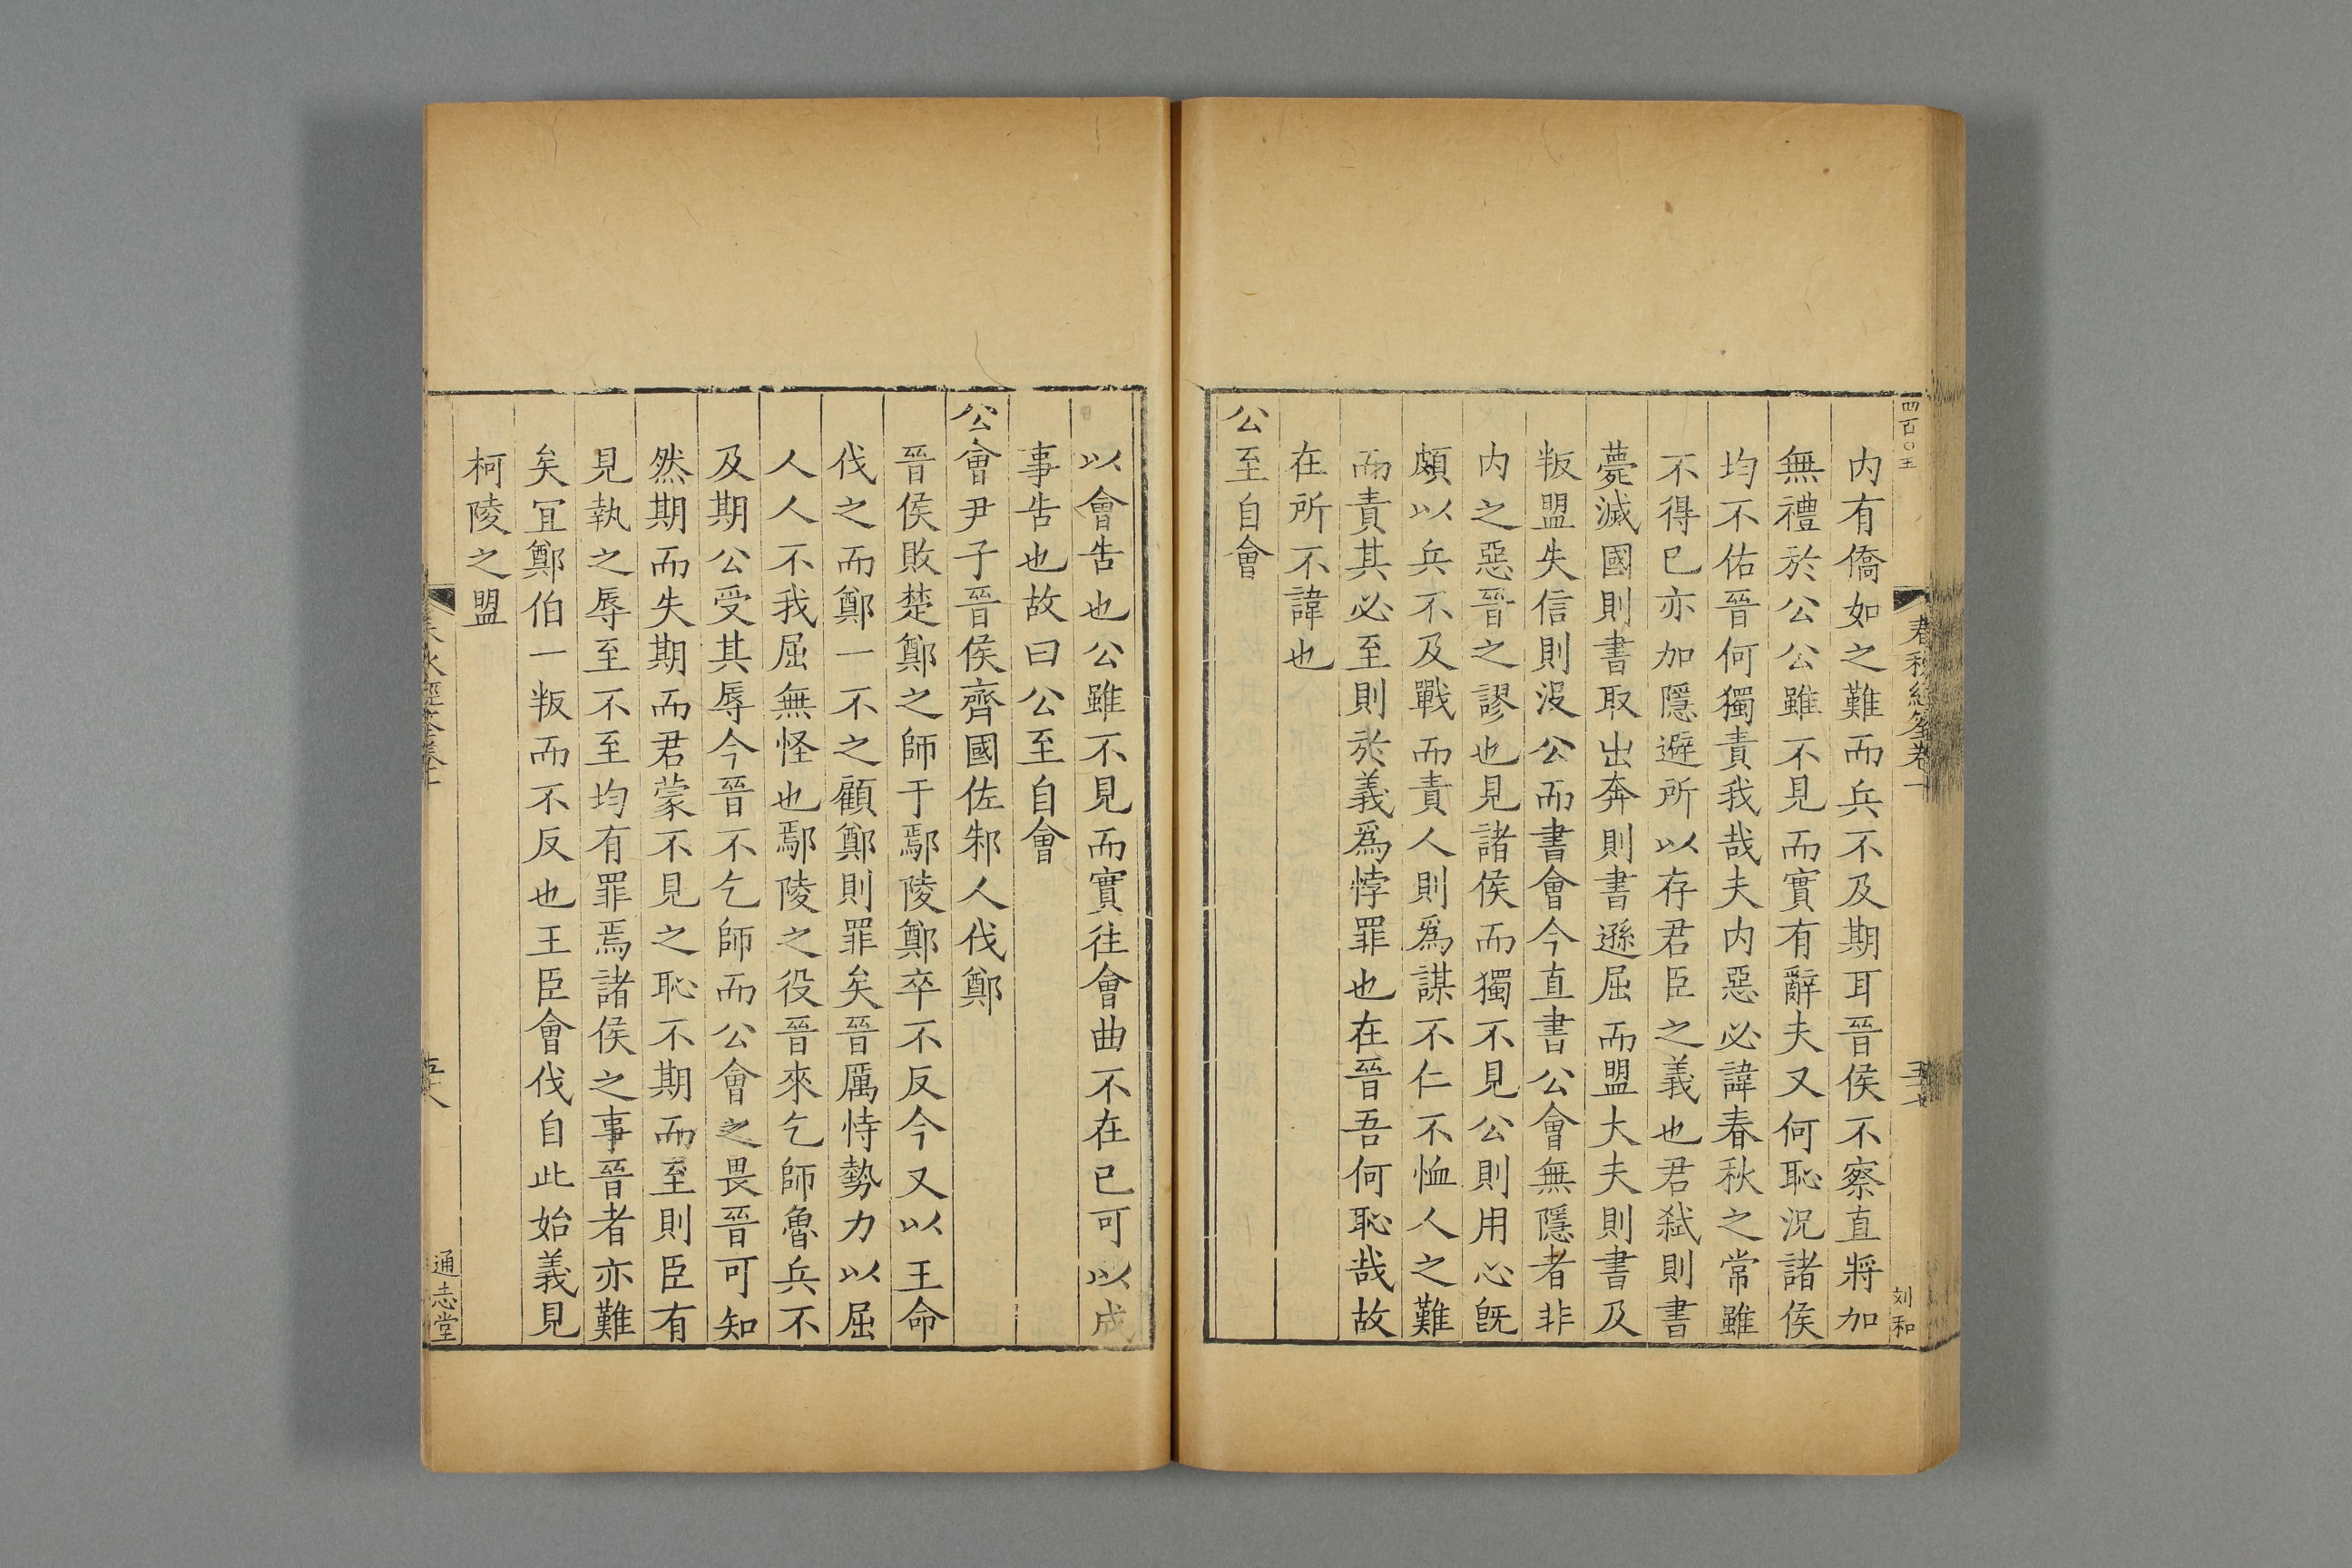 四百〇五
春秋經筌卷十
五十七
刘和
内有僑如之難而兵不及期耳晉侯不察直將加
無禮於公公雖不見而實有辭夫又何恥況諸侯
均不佑晉何獨責我哉夫内惡必諱春秋之常雖
不得已亦加隱避所以存君臣之義也君弑則書
薨滅國則書取出奔則書遜屈而盟大夫則書及
叛盟失信則沒公而書會今直書公會無隱者非
内之惡晉之謬也見諸侯而獨不見公則用心旣
頗以兵不及戰而責人則爲謀不仁不恤人之難
而責其必至則於義爲悖罪也在晉吾何恥哉故
在所不諱也
公至自會
以會告也公雖不見而實往會曲不在已可以成
事告也故曰公至自會
公會尹子晉侯齊國佐邾人伐鄭
晉侯敗楚鄭之師于鄢陵鄭卒不反今又以王命
伐之而鄭一不之顧鄭則罪矣晉厲恃勢力以屈
人人不我屈無怪也鄢陵之役晉來乞師魯兵不
及期公受其辱今晉不乞師而公會之畏晉可知
然期而失期而君蒙不見之恥不期而至則臣有
見執之辱至不至均有罪焉諸侯之事晉者亦難
矣冝鄭伯一叛而不反也王臣會伐自此始義見
柯陵之盟
通志堂